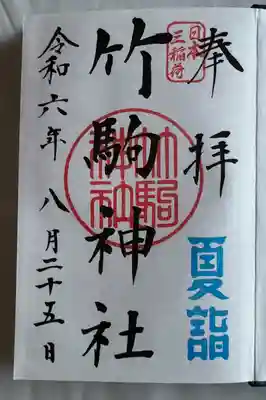 奉拝
日本
三稲荷
夏詣
竹駒神社
竹駒
神社
令和六年八月二十五日